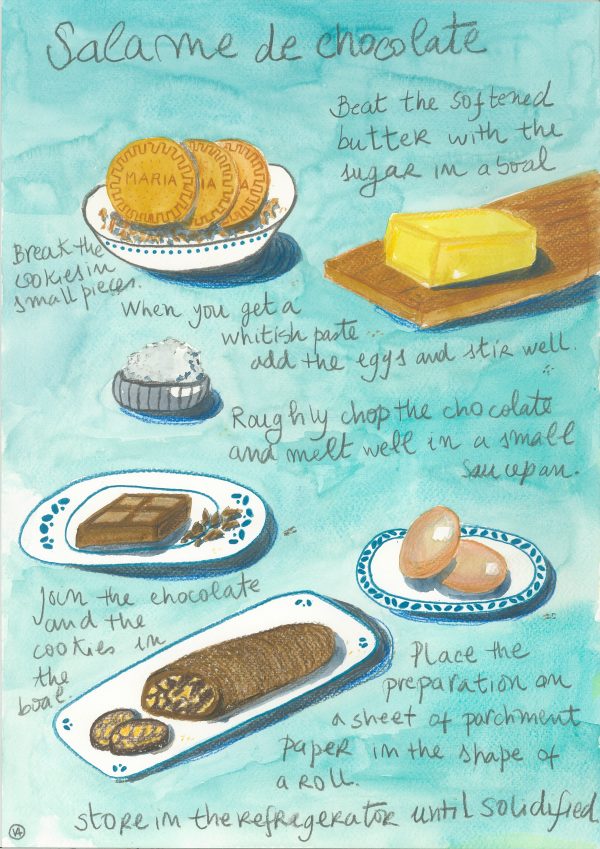 Salame de chocolate
Beat the softened
butter with the
sugar in a boal
MARIA
IA
A
Break the
cookies in
small pieces.
When you get a
whitish paste
add the eggs and stir well.
Roughly chop the chocolate
and melt well in a small
saucepan.
Join the chocolate
and the
cookies in
the
boal.
Place the
preparation on
a sheet of parchment
paper in the shape of
a roll.
store in the refragerator until solidified.